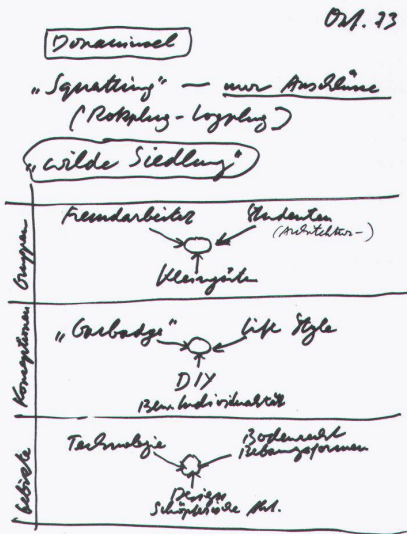 Okt. 73
Donauinsel
„Squatting" — nur Anschlüsse
"wilde Siedlung"
Gruppen
Fremdarbeiter Studenten
(Architektur-)
Kleingärtn
Konzeptionen
„Garbadge" Life Style
DIY
Bew. Individualität
Technologie Bodenrecht
Bebauungsformen
Design
Schöpferische